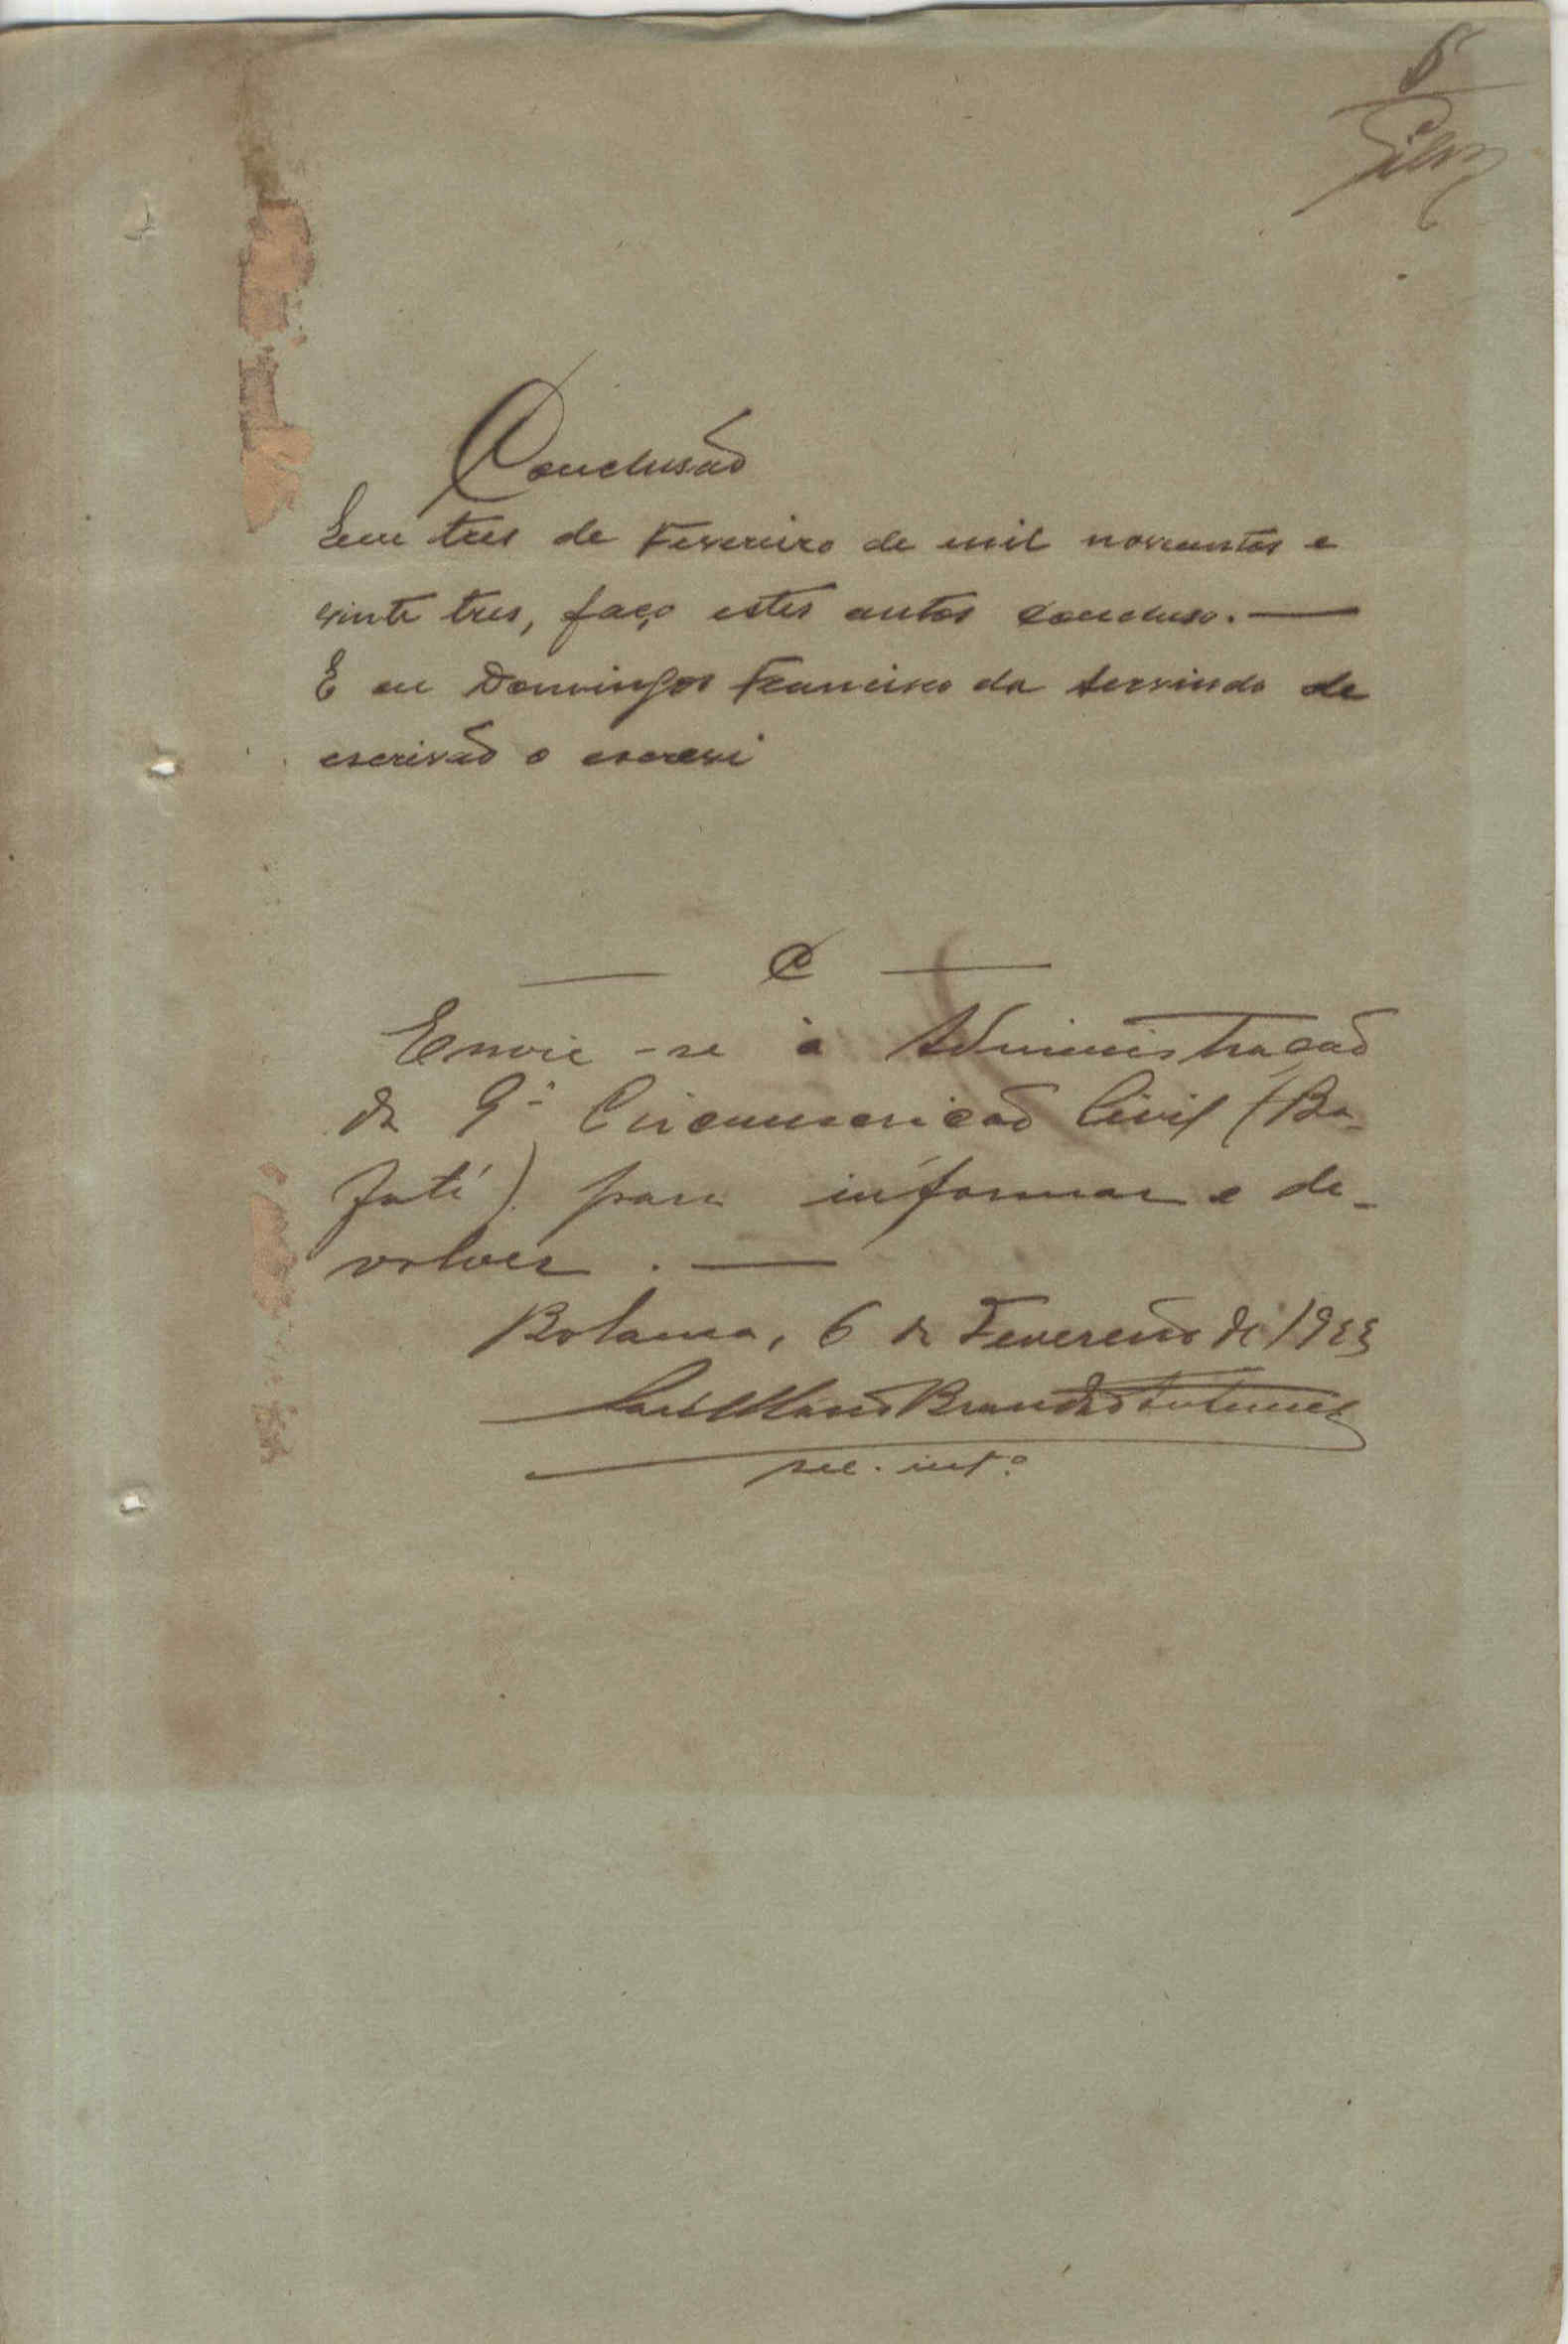 6
Silva
Conclusão
Em tres de Fevereiro de mil novecentos e
vinte tres, faço estes autos concluso. —
E eu Domingos Francisco da servindo de
escrivão o escrevi
— C —
Envie-se à Administração
da 9ª Circumscrição Civil (Ba-
fatá) para informar e de-
volver. —
Bolama, 6 de Fevereiro de 1923
Brandão Antunes
sec. intº